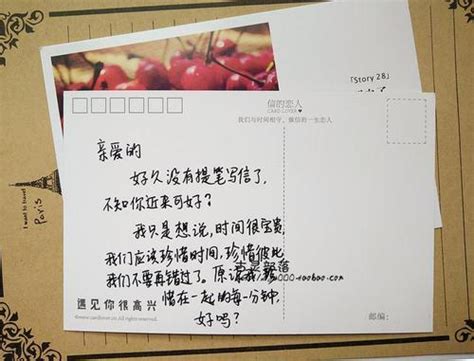 「Story 28」
信的恋人
CARD LOVER
我们与时间相守，做信的一生恋人
亲爱的
好久没有提笔写信了，
不知你近来可好？
我只是想说，时间很宝贵，
我们应该珍惜时间，珍惜彼此
我们不要再错过了。原谅我，珍
惜在一起的每一分钟，
好吗？
遇见你很高兴
©www.cardlover.cn All rights reserved.
邮编：
I want to travel
Paris